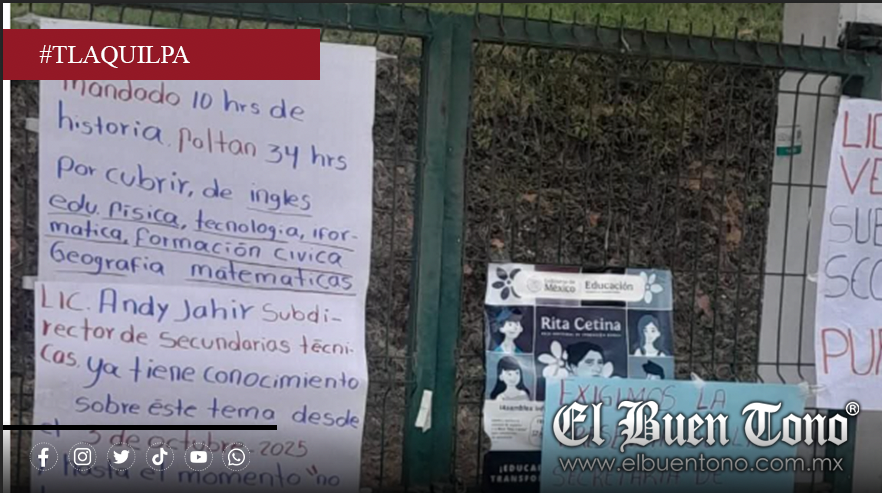 #TLAQUILPA
mandado 10 hrs de
historia. Poltan 34 hrs
Por cubrir, de ingles
edu. Pisica, tecnologia, ifor-
matica, Formación civica
Geografia matematicas
LIC. Andy Jahir Subdi-
rector de Secundarias técni-
cas. ya tiene conocimiento
sobre éste tema desde
el 3 de octubre 2025
hasta el momento "no
Gobierno de
México
Educación
Rita Cetina
EXIGIMOS LA
SECRETARÍA DE
¡EDUCA
TRANSFOR
LIC
VE
SUB
SEC
PU
El Buen Tono®
www.elbuentono.com.mx